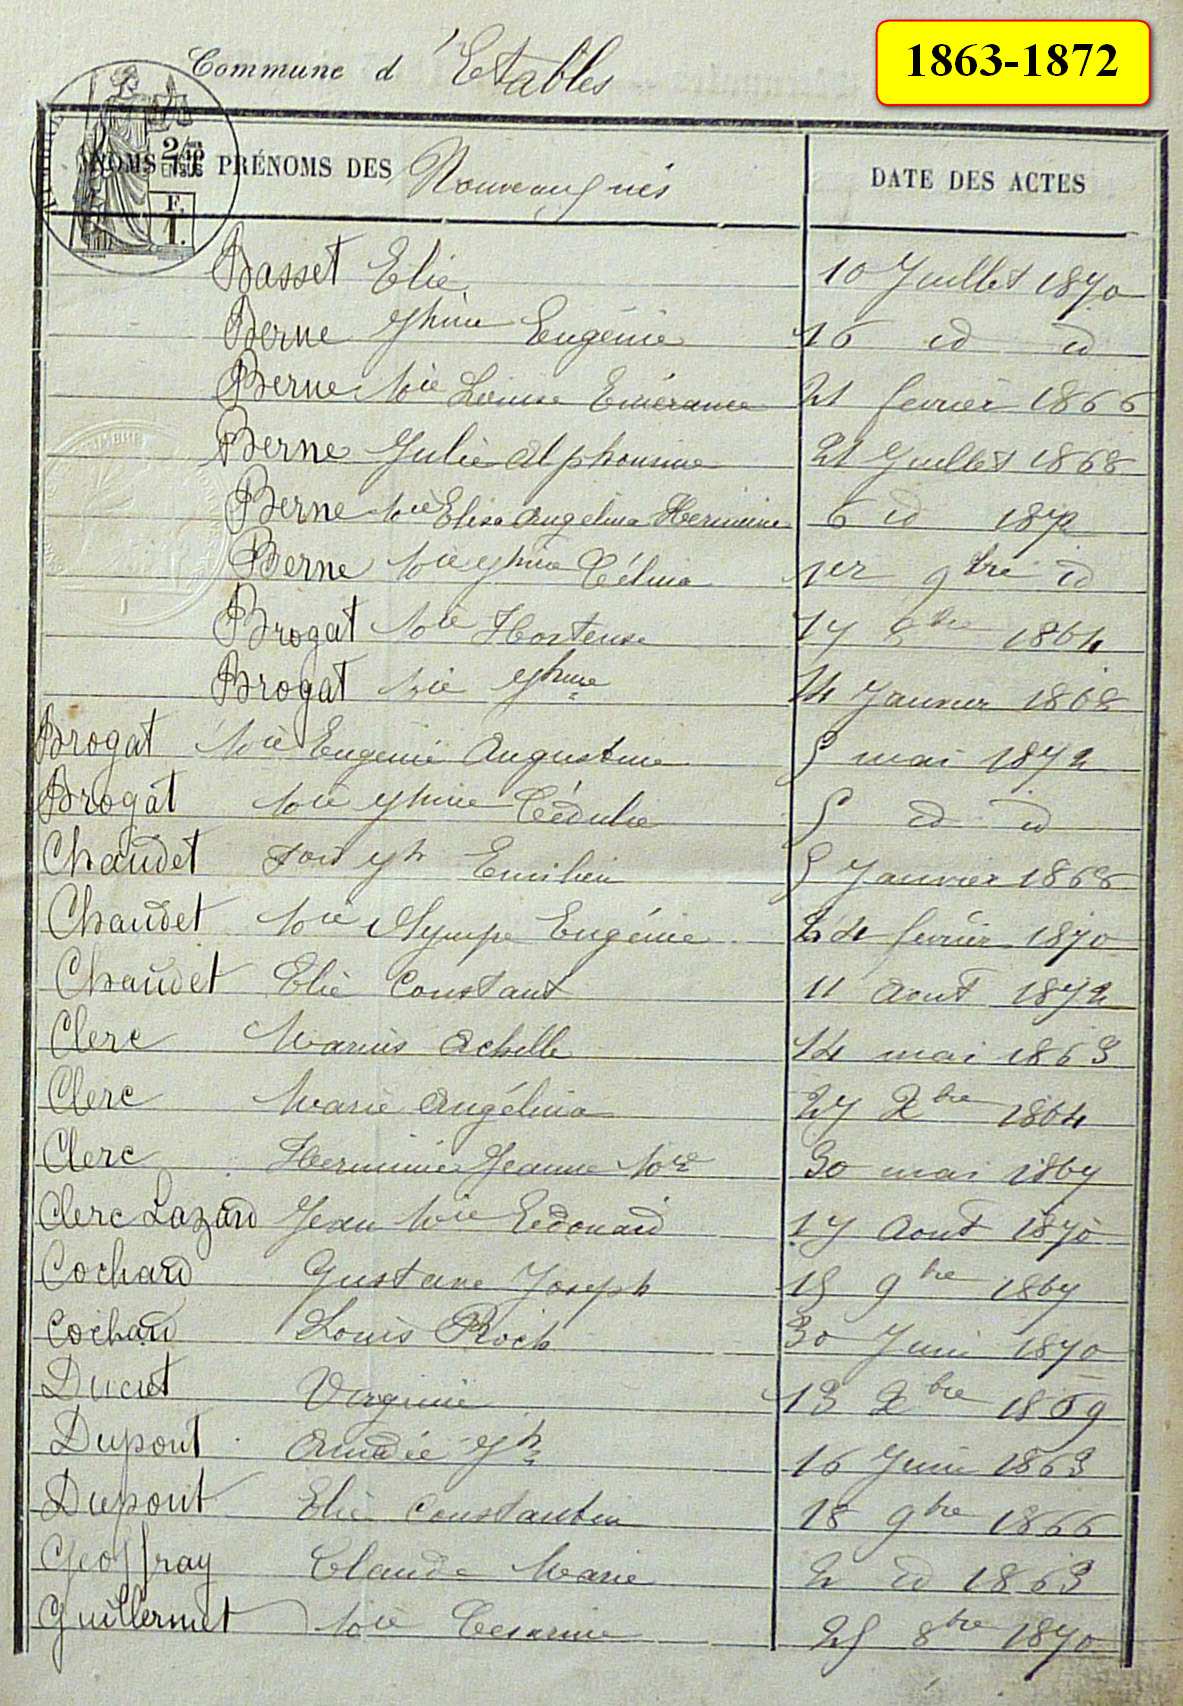 1863-1872
Commune d'Etables
NOMS ET PRÉNOMS DES Nouveaux nés
DATE DES ACTES
2/10 EN SUS
F. 1.
Basset Elie 10 Juillet 1870
Berne Jphine Eugénie 16 id id
Berne Mie Louise Emérance 21 février 1866
Berne Julie Alphonsine 21 Juillet 1868
Berne Mie Elisa Angelina Hermine 6 id 1872
Berne Mie Jphine Célina 1er 9bre id
Brogat Mie Hortense 17 8bre 1864
Brogat Mie Jphine 14 Janvier 1868
Brogat Mie Eugenie Augustine 5 mai 1872
Brogat Mie Jphine Cédulie 5 id id
Chaudet fois Jph Emilien 5 Janvier 1868
Chaudet Mie Olympe Eugénie 24 février 1870
Chaudet Elie Constant 11 Aout 1872
Clerc Marius Achille 14 mai 1863
Clerc Marie Angélina 27 Xbre 1864
Clerc Herminie Jeanne Mie 30 mai 1867
Clerc Lazard Jean Mie Edouard 17 Aout 1870
Cochard Gustave Joseph 15 9bre 1867
Cochard Louis Roch 30 Juin 1870
Ducret Virginie 13 Xbre 1869
Dupont Amédée Jph 16 Juin 1863
Dupont Elie Constantin 18 9bre 1866
Geoffray Claude Marie 2 id 1863
Guillermet Mie Césarine 25 8bre 1870